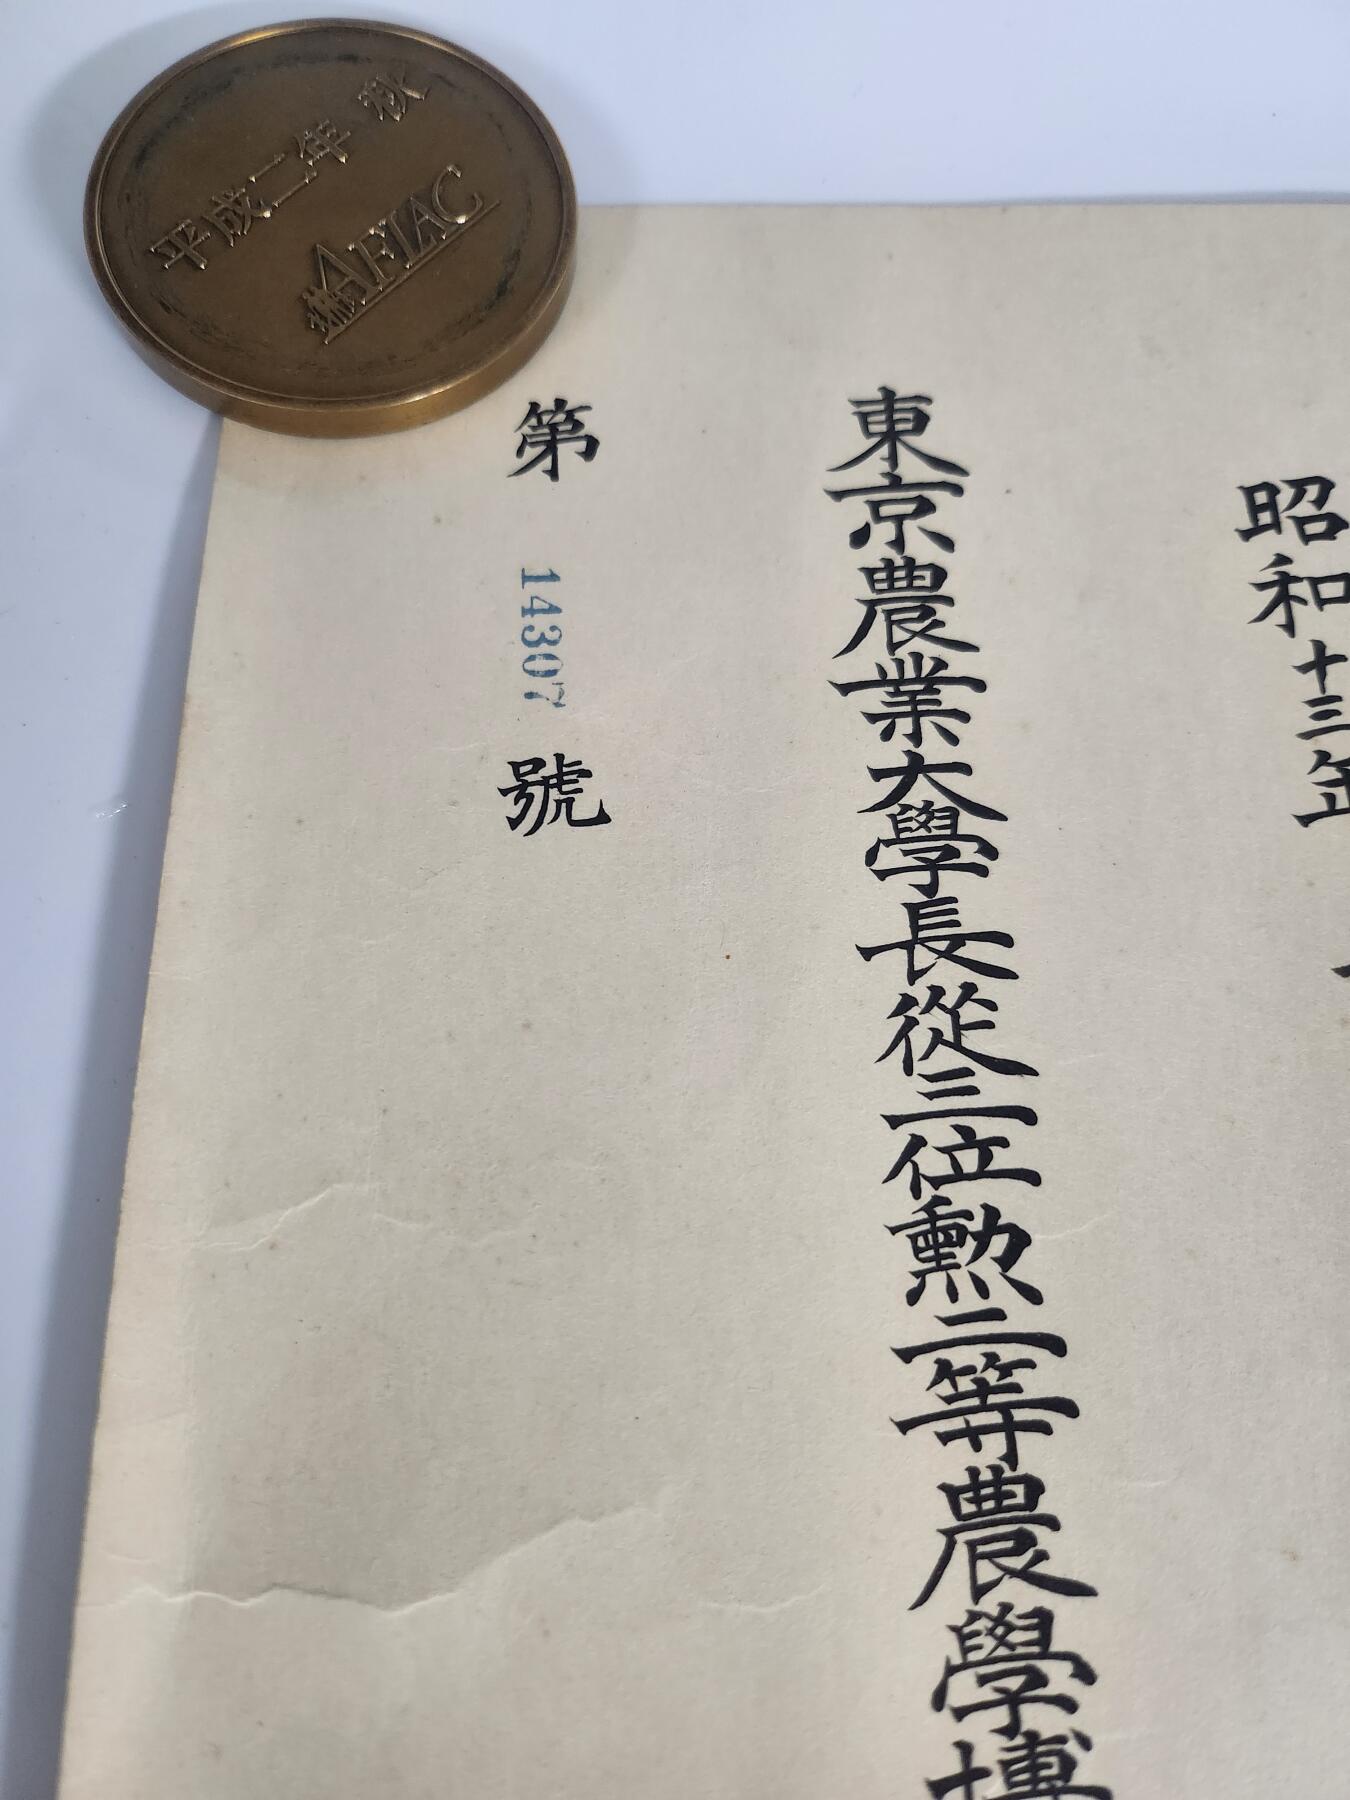 平成二年 秋
AFLAC
昭和十三年
東京農業大學長從三位勲二等農學博
第 14307 號